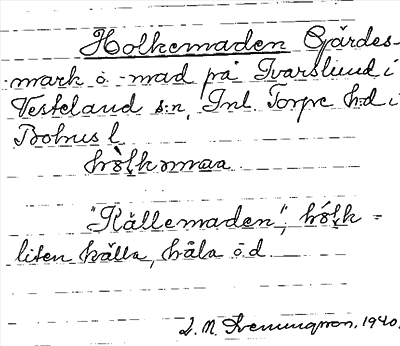 Holkemaden Gärdes-
mark o. -mad på Ivarslund i
Vesteland s:n, Inl. Torpe h:d i
Bohus l
hò̀ḷkmaa
"Källemaden", hóḷk =
liten källa, håla o d